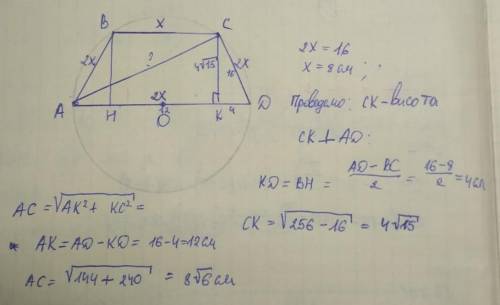 B x C
2x ? 4√15 16 2x
2x
A H 12 O K 4 D
2x = 16
x = 8 см ; ;
Проведемо: CK - висота
CK ⊥ AD.
KD = BH = AD - BC / 2 = 16-8 / 2 = 4см
AC = √AK² + KC² =
CK = √256 - 16 = 4√15
* AK = AD - KD = 16-4 = 12см
AC = √144 + 240 = 8√6 см